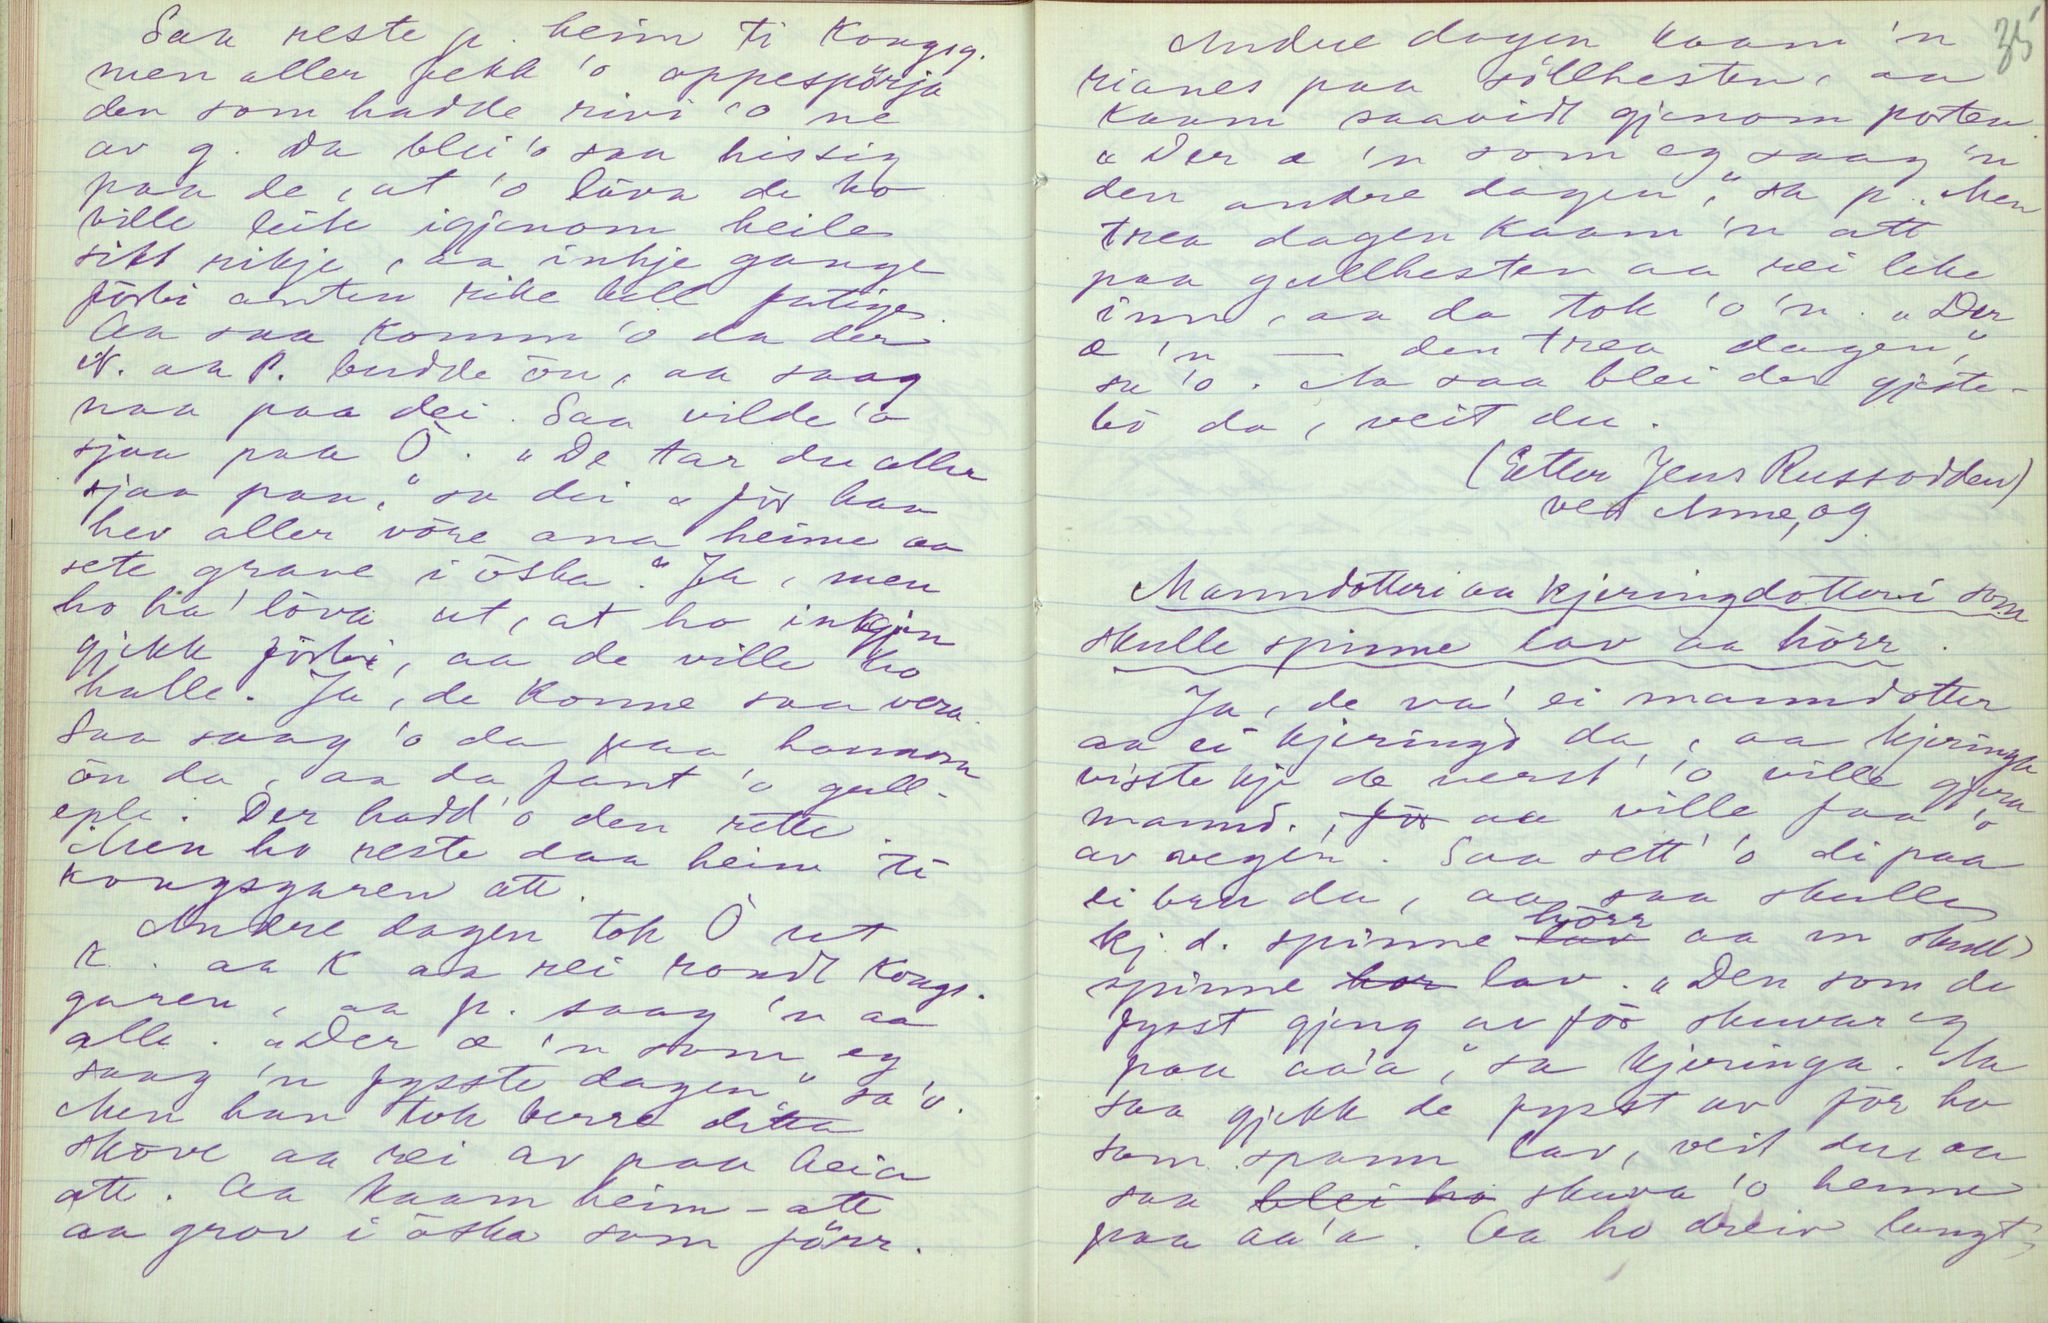 Saa reste p. heim ti Kongsg.
men aller fekk 'o oppespörja
den som hadde rivi 'o ne
av g. Da blei 'o saa hissig
paa de, at 'o löva de ho
ville leite igjenom heile
sitt rikje, aa inkje gange
förbi anten rike hell fatige.
Aa saa komm 'o da der
N. aa P. budde ön, aa saag
naa paa dei. Saa vilde 'o
sjaa paa Ö. „De tar du aller
sjaa paa," sa dei „för han
hev aller vöre ana heime aa
sete grave i öska." Ja, men
ho ha' löva ut, at ho inkjen
gjekk förbi, aa de ville ho
halle. Ja, de konne saa vera.
Saa saag 'o da paa hannom
ön da, aa da fant 'o gull-
eple. Der hadd 'o den rette.
Men ho reste daa heim ti
kongsgaren att.
Andre dagen tok Ö ut
K. aa K aa rei rondt Kongs-
garen, aa p. saag 'n aa
alle. „Der æ 'n som eg
saag 'n fysste dagen," sa 'o.
Men han tok berre ditta
sköve aa rei av paa heia
att. Aa kaam heim-att
aa grov i öska som förr.
35
Andre dagen kaam 'n
rianes paa söllhesten, aa
kaam saavidt gjenom porten.
„Der æ 'n som eg saag 'n
den andre dagen," sa p. Men
trea dagen kaam 'n att
paa gullhesten aa rei like
inn, aa da tok 'o 'n. „Der
æ 'n — den trea dagen,"
sa 'o. Aa saa blei der gjeste-
bö da, veit du.
(Etter Jens Russodden)
ved Anne, og
Manndotteri aa kjeringdotteri som
skulle spinne lav aa hörr.
Ja, de va' ei manndotter
aa ei kjeringd da, aa kjeringa
visste kje de verst' 'o ville gjera
mannd., för aa ville faa 'o
av vegen. Saa sett' 'o di paa
ei bru da, aa saa skulle
kj. d. spinne lav hörr aa m skull
spinne hor lav. „Den som de
fysst gjeng av för skuvar eg
paa aa'a," sa kjeringa. Aa
saa gjekk de fysst av för ho
som spann lav, veit du, aa
saa blei ho skuva 'o henne
paa aa'a. Aa ho dreiv langt,